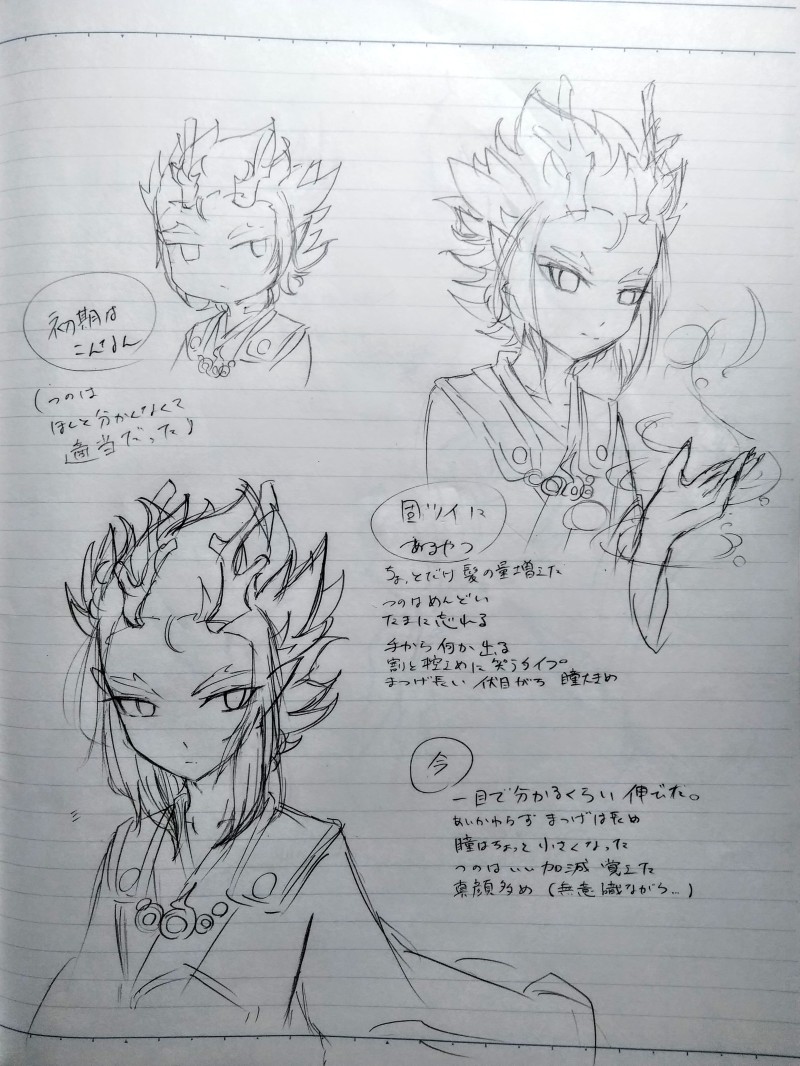 初期は
こんなん
(つのは
ほんと分かんなくて
適当だった)
固ツイに
あるやつ
ちょっとだけ髪の量増えた
つのはめんどい
たまに忘れる
手から何か出る
割と控えめに笑うタイプ。
まつげ長い 伏目がち 瞳大きめ
今
一目で分かるくらい伸びた。
あいかわらず まつげは長め
瞳はちょっと小さくなった
つのはいい加減覚えた
真顔多め (無意識ながら…)